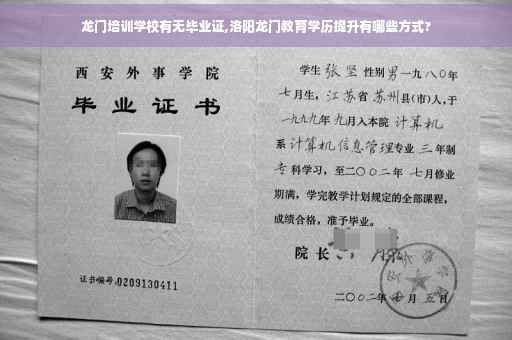 龙门培训学校有无毕业证,洛阳龙门教育学历提升有哪些方式?
西安外事学院
毕业证书
证书编号:0209130411
学生张坚性别男一九八〇年
七月生,江苏省苏州县(市)人,于
一九九九年九月入本院计算机
系计算机信息管理专业三年制
专科学习,至二〇〇二年七月修业
期满,学完教学计划规定的全部课程,
成绩合格,准予毕业。
院长
二〇〇二年 月五日